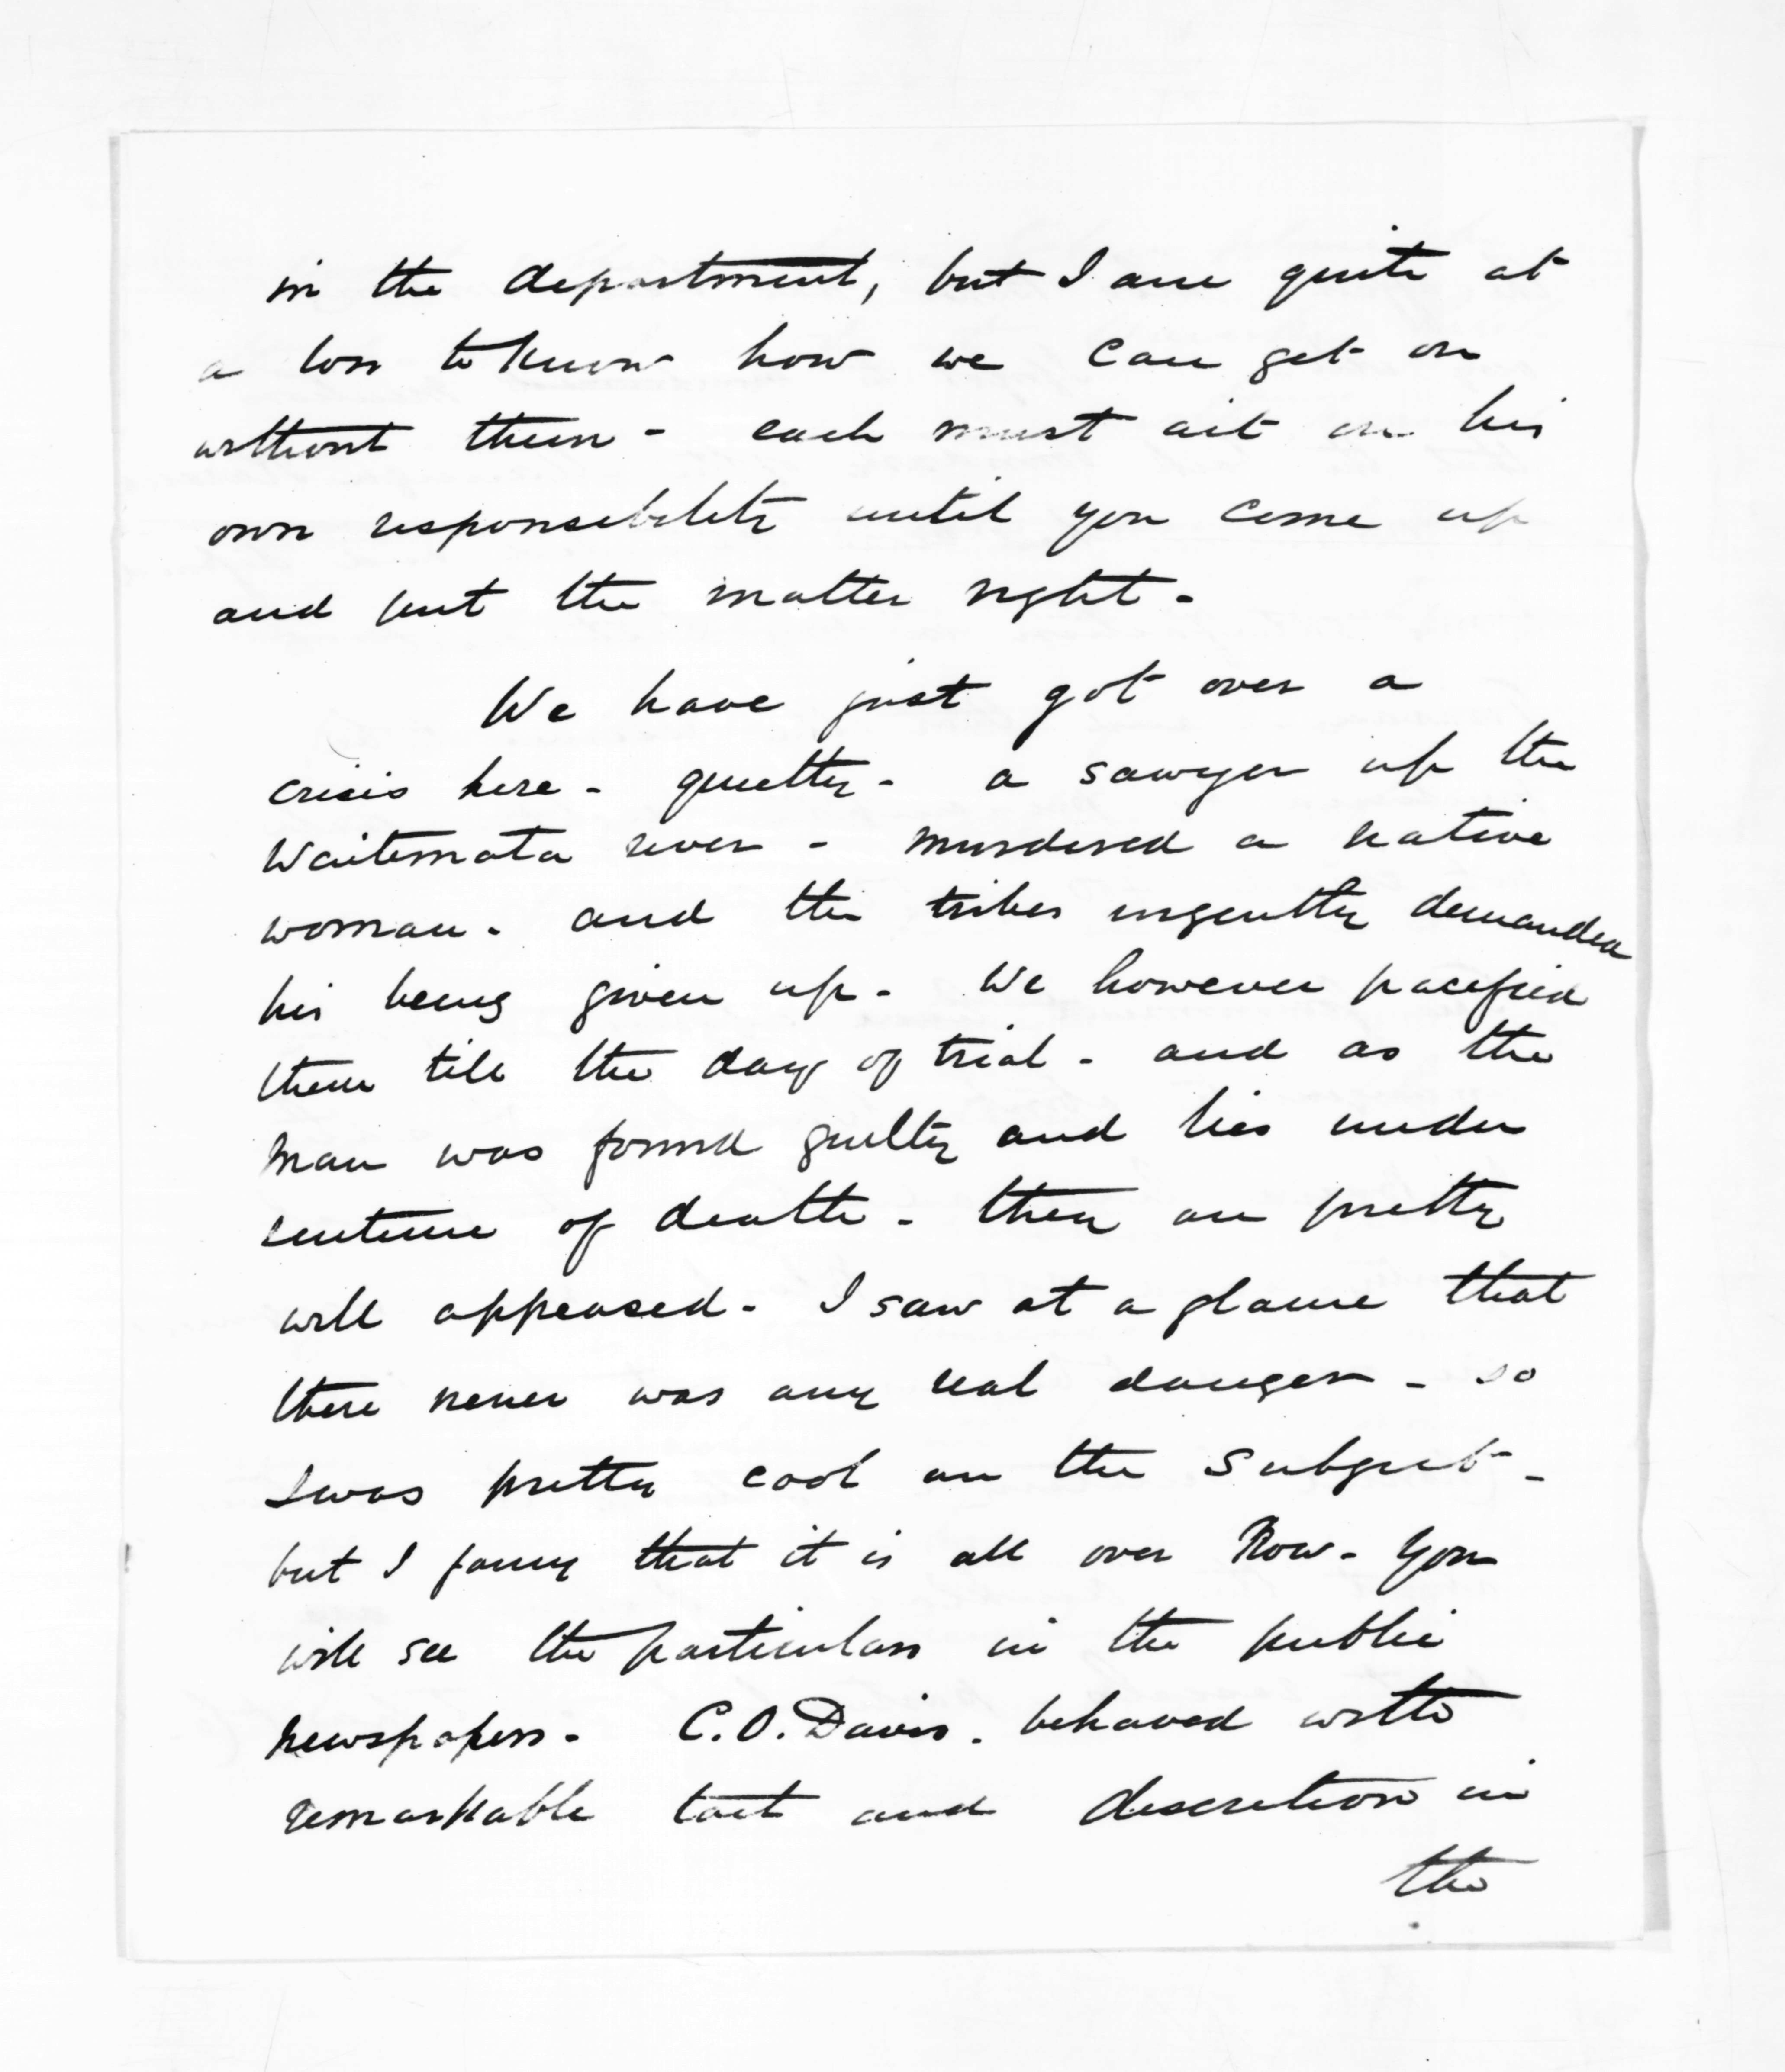 in the department, but I am quite at
a loss to know how we can get on
without them - each must act on his
own responsibility until you come up
and put the matter right -
We have just got over a
crisis here - quietly - a sawyer up the
Waitemata river - murdered a native
woman - and the tribes urgently demanded
his being given up - We however pacified
them till the day of trial - and as the
man was found guilty and lies under
sentence of death - they are pretty
well appeased - I saw at a glance that
there never was any real danger - so
I was pretty cool on the subject -
but I fancy that it is all over now - You
will see the particulars in the public
newspapers - C. O. Davis - behaved with
remarkable tact and discretion in
the